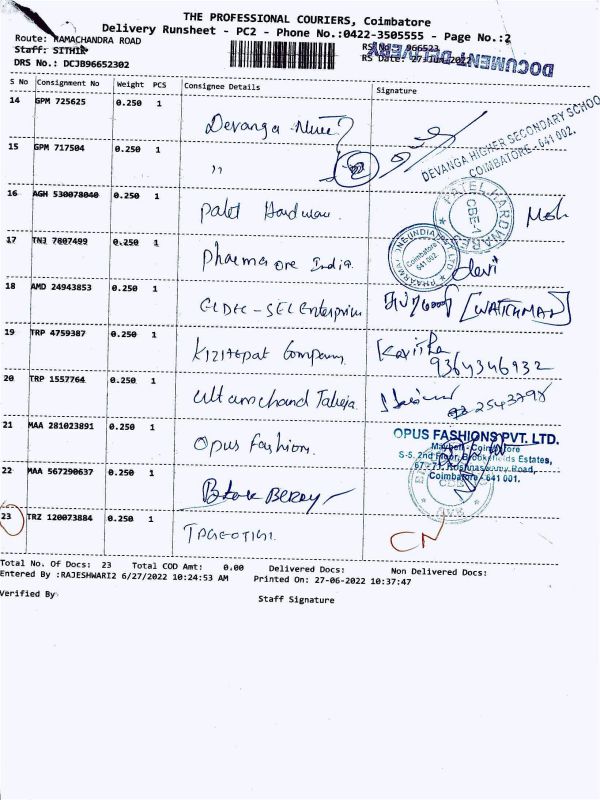 THE PROFESSIONAL COURIERS, Coimbatore
Delivery Runsheet - PC2 - Phone No.:0422-3505555 - Page No.:2
Route: RAMACHANDRA ROAD
Staff: SITHIK
DRS No.: DCJB96652302
RS No.: 966523
RS Date: 27-Jun-2022
DOCUMENT DELIVERY
S No Consignment No Weight PCS Consignee Details Signature
14 GPM 725625 0.250 1 Devanga
DEVANGA HIGHER SECONDARY SCHOOL
COIMBATORE - 641 002.
15 GPM 717504 0.250 1 ,,
16 AGH 530078040 0.250 1 Patel Hardware.
PATEL HARDWARES
CBE-1
17 TNJ 7807499 0.250 1 Pharma ore India.
Coimbatore
641 002
Devi
18 AMD 24943853 0.250 1 ELDEC - SEL Enterprises [WATCHMAN]
19 TRP 4759387 0.250 1 Company. Kavitha
9364346932
20 TRP 1557764 0.250 1 Uttamchand Taleja.
2543798
21 MAA 281023891 0.250 1 Opus Fashion.
OPUS FASHIONS PVT. LTD.
S-5, 2nd Floor, Brookefields Estates,
67-71, Krishnasamy Road,
Coimbatore - 641 001.
22 MAA 567290637 0.250 1
23 TRZ 120073884 0.250 1 CN
Total No. Of Docs: 23 Total COD Amt: 0.00 Delivered Docs: Non Delivered Docs:
Entered By :RAJESHWARI2 6/27/2022 10:24:53 AM Printed On: 27-06-2022 10:37:47
Verified By
Staff Signature